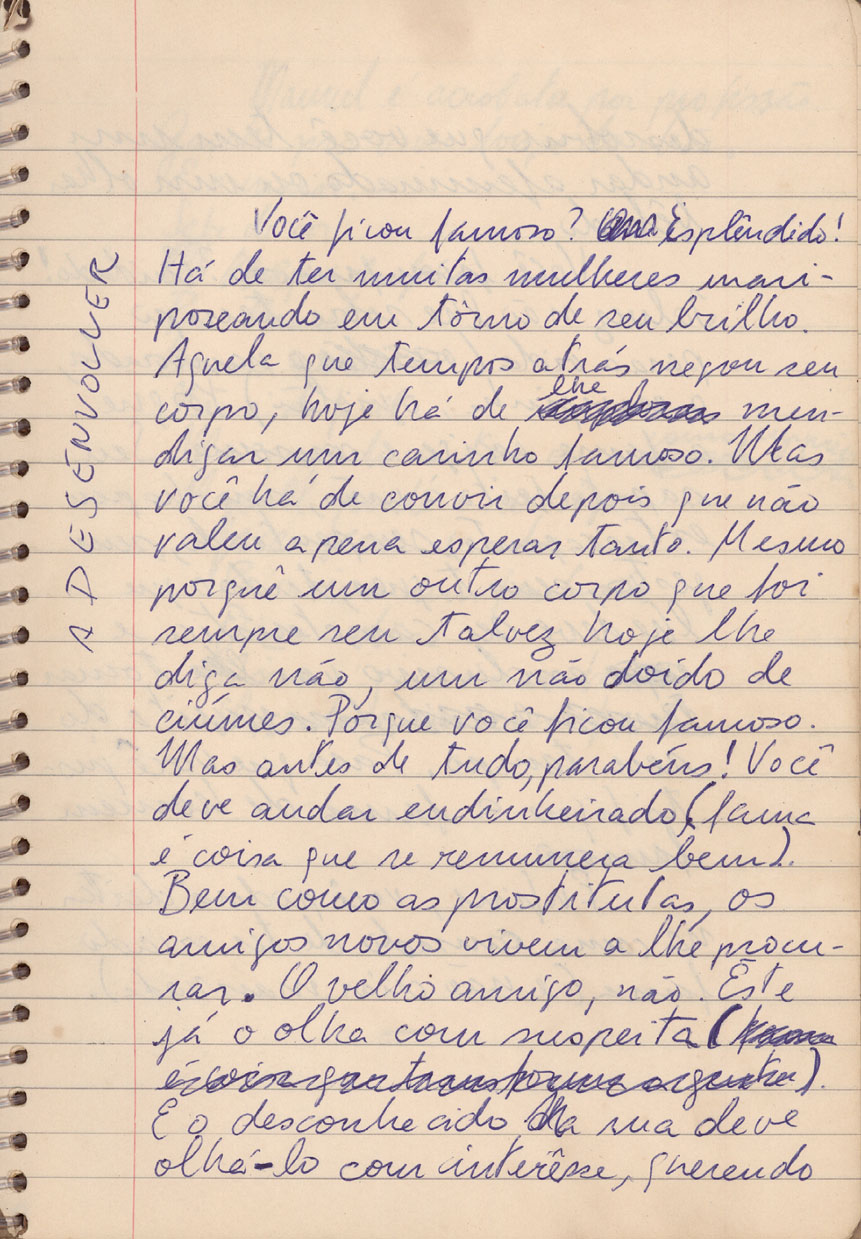 A DESENVOLVER
Você ficou famoso? Esplêndido!
Há de ter muitas mulheres mari-
poseando em tôrno de seu brilho.
Aquela que tempos atrás negou seu
corpo, hoje há de lhe men-
digar um carinho famoso. Mas
você há de convir depois que não
valeu a pena esperar tanto. Mesmo
porquê um outro corpo que foi
sempre seu talvez hoje lhe
diga não, um não doido de
ciúmes. Porque você ficou famoso.
Mas antes de tudo, parabéns! Você
deve andar endinheirado (fama
é coisa que se remunera bem).
Bem como as prostitutas, os
amigos novos vivem a lhe procu-
rar. O velho amigo, não. Êste
já o olha com suspeita (fama
é coisa que transforma a gente).
E o desconhecido da rua deve
olhá-lo com interêsse, querendo